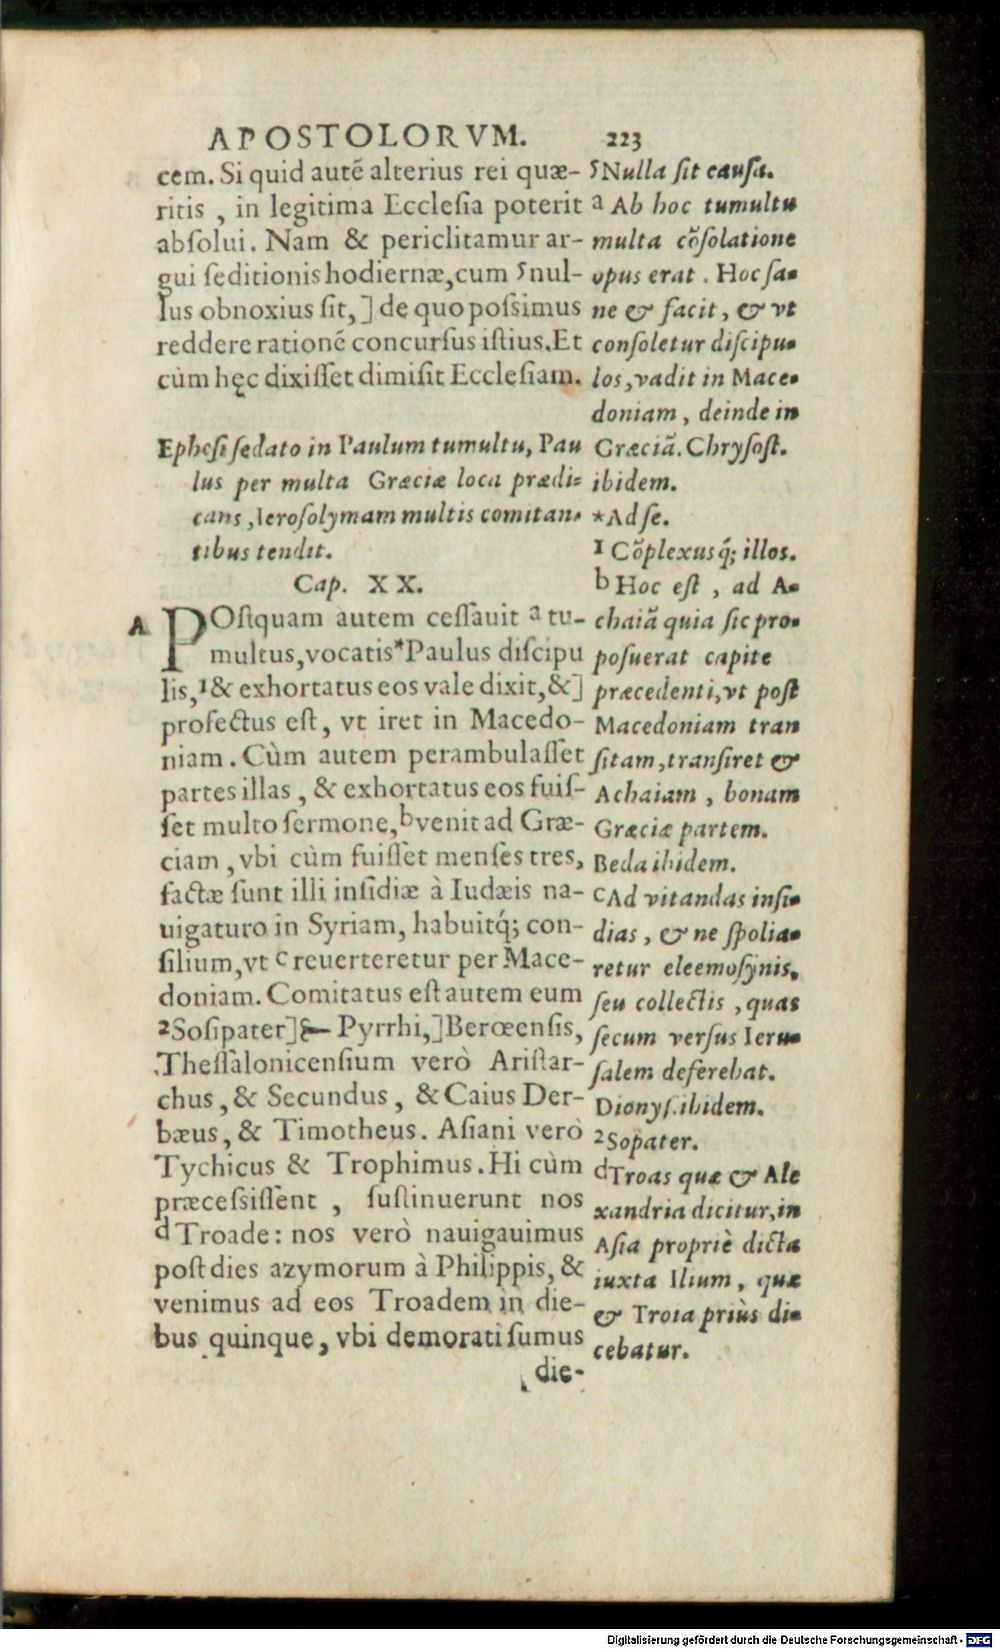 APOSTOLORVM. 223
cem. Si quid autē alterius rei quæ-
ritis , in legitima Eccleſia poterit
abſolui. Nam & periclitamur ar-
gui ſeditionis hodiernæ,cum ⁵nul-
lus obnoxius ſit,] de quo poſsimus
reddere rationē concurſus iſtius.Et
cùm hęc dixiſſet dimiſit Eccleſiam.
Epheſi ſedato in Paulum tumultu, Pau
lus per multa Græciæ loca prædi-
cans ,Ieroſolymam multis comitan-
tibus tendit.
Cap. XX.
A
POſtquam autem ceſſauit ᵃ tu-
multus,vocatis*Paulus diſcipu
lis,¹& exhortatus eos vale dixit,&]
profectus eſt, vt iret in Macedo-
niam. Cùm autem perambulaſſet
partes illas , & exhortatus eos fuiſ-
ſet multo ſermone,ᵇvenit ad Græ-
ciam , vbi cùm fuiſſet menſes tres,
factæ ſunt illi inſidiæ à Iudæis na-
uigaturo in Syriam, habuitq́; con-
ſilium,vt ᶜreuerteretur per Mace-
doniam. Comitatus eſt autem eum
²Soſipater] Pyrrhi,]Berœenſis,
Theſſalonicenſium verò Ariſtar-
chus , & Secundus , & Caius Der-
bæus, & Timotheus. Aſiani verò
Tychicus & Trophimus. Hi cùm
præceſsiſſent , ſuſtinuerunt nos
ᵈTroade: nos verò nauigauimus
poſt dies azymorum à Philippis, &
venimus ad eos Troadem in die-
bus quinque, vbi demorati ſumus
die-
⁵Nulla ſit cauſa.
ᵃ Ab hoc tumultu
multa cōſolatione
opus erat . Hoc ſa-
ne & facit, & vt
conſoletur diſcipu-
los,vadit in Mace-
doniam, deinde in
Græciā. Chryſoſt.
ibidem.
*Ad ſe.
¹ Cōplexus q́; illos.
ᵇ Hoc eſt , ad A-
chaiā quia ſic pro-
poſuerat capite
præcedenti,vt poſt
Macedoniam tran
ſitam,tranſiret &
Achaiam , bonam
Græciæ partem.
Beda ibidem.
ᶜAd vitandas inſi-
dias, & ne ſpolia-
retur eleemoſynis,
ſeu collectis , quas
ſecum verſus Ieru-
ſalem deferebat.
Dionyſ. ibidem.
²Sopater.
ᵈTroas quæ & Ale
xandria dicitur,in
Aſia propriè dicta
iuxta Ilium, quæ
& Troia priùs di-
cebatur.
Digitalisierung gefördert durch die Deutsche Forschungsgemeinschaft - DFG